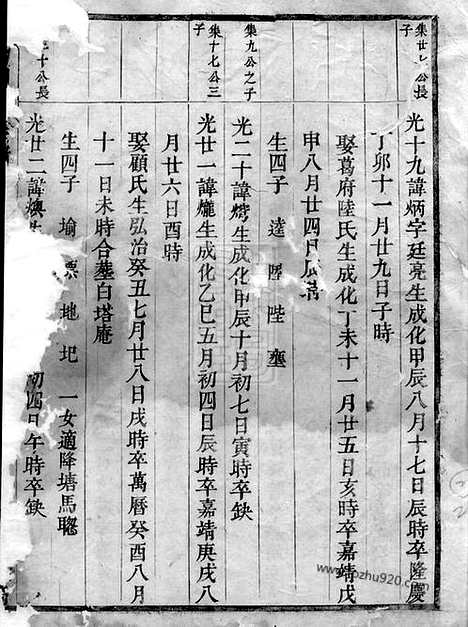 集廿 公長
子
光十九諱炳字廷亮生成化甲辰八月十七日辰時卒隆慶
丁卯十一月廿九日子時
娶葛府陸氏生成化丁未十一月廿五日亥時卒嘉靖戊
申八月廿四日辰時
生四子 逵 陞 陛 壅
集九公之子
光二十諱 生成化甲辰十月初七日寅時卒缺
集十七公三
子
光廿一諱爖生成化乙巳五月初四日辰時卒嘉靖庚戌八
月廿六日酉時
娶顧氏生弘治癸丑七月廿八日戌時卒萬曆癸酉八月
十一日未時合塟白塔庵
生四子 墒 地 圯 一女適降塘馬聰
十公長
光廿二諱 初四日午時卒缺
www.pozhu920.com